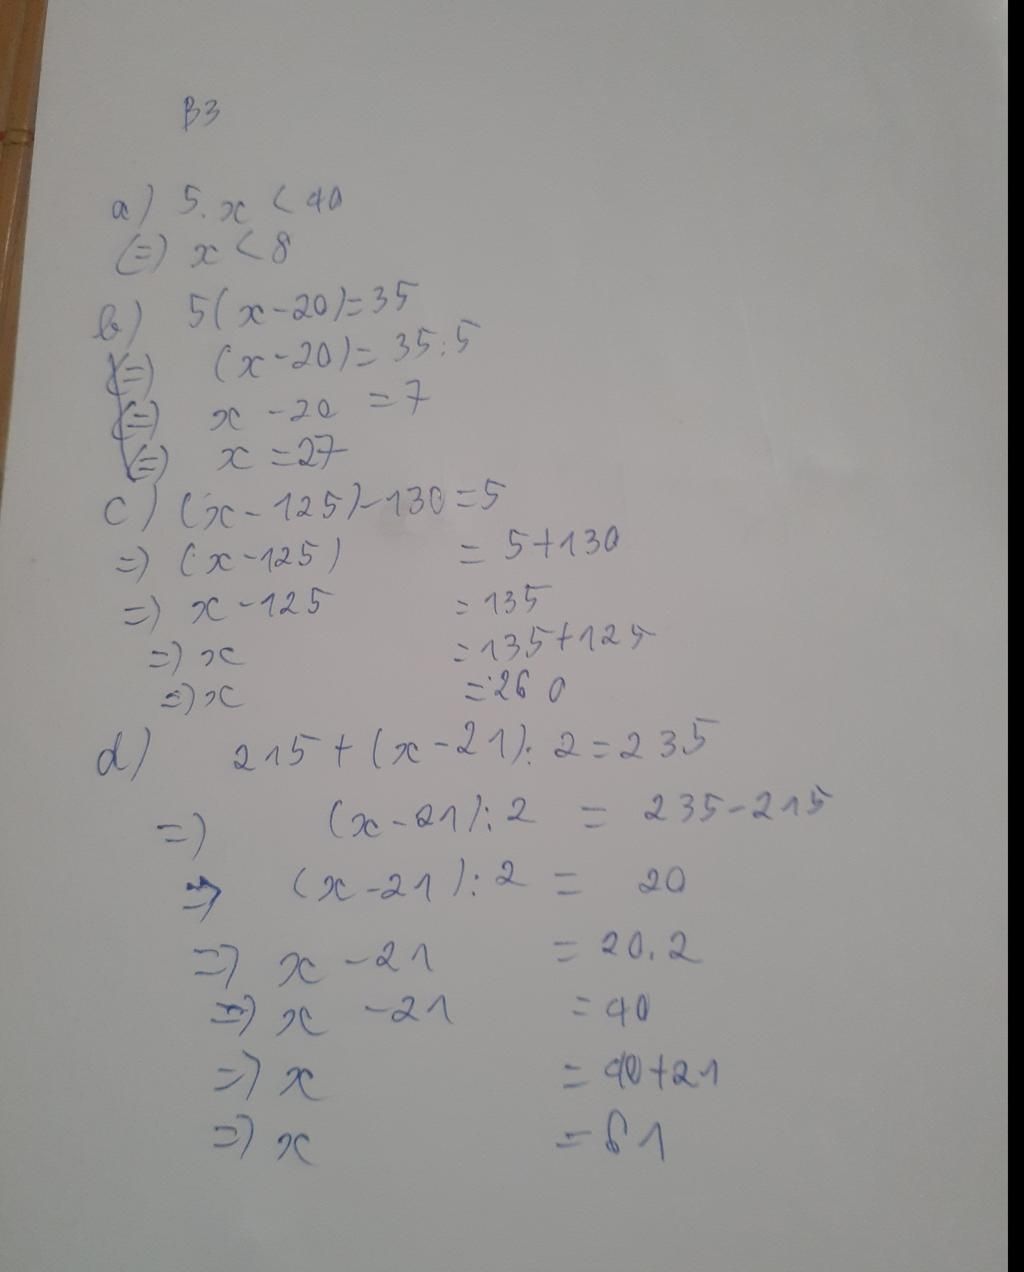 B3
a) 5.x < 40
(=) x < 8
b) 5(x-20)=35
(=) (x-20)= 35:5
(=) x -20 =7
(=) x =27
c) (x-125)-130=5
=) (x-125) = 5+130
=) x-125 =135
=) x =135+125
=) x =260
d) 215+(x-21):2=235
=) (x-21):2 = 235-215
=) (x-21):2 = 20
=) x -21 = 20.2
=) x -21 =40
=) x = 40+21
=) x =61